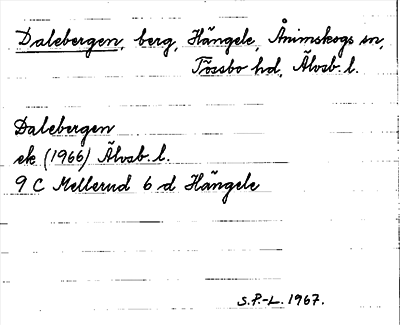 Dalebergen, berg, Hängele, Ånimskogs sn,
Tössbo hd, Älvsb. l.
Dalebergen
ek (1966) Älvsb. l.
9 C Mellerud 6 d Hängele
S.P.-L. 1967.